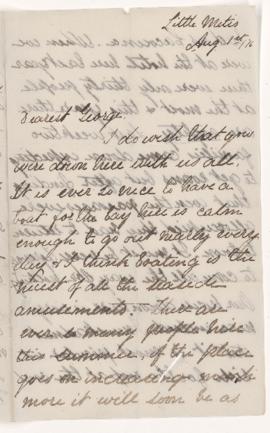 Little Metis
Aug 1st /76
Dearest George
I do wish that you
were down here with us all
It is ever so nice to have a
boat for the bay here is calm
enough to go out nearly every
day & I think boating is the
nicest of all the seaside
amusements — There are
ever so many people here
this summer if the place
goes on increasing much
more it will soon be as